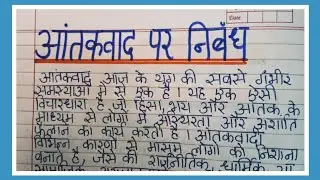 आंतकवाद पर निबंध
आंतकवाद आज के युग की सबसे गंभीर
समस्याओं में से एक है। यह एक ऐसी
विचारधारा है जो हिंसा, भय और आतंक के
माध्यम से लोगों में अस्थिरता और अशांति
फैलाने का कार्य करती है। आतंकवादी
विभिन्न कारणों से मासूम लोगों को निशाना
बनाते है, जैसे की राजनीतिक, धार्मिक या